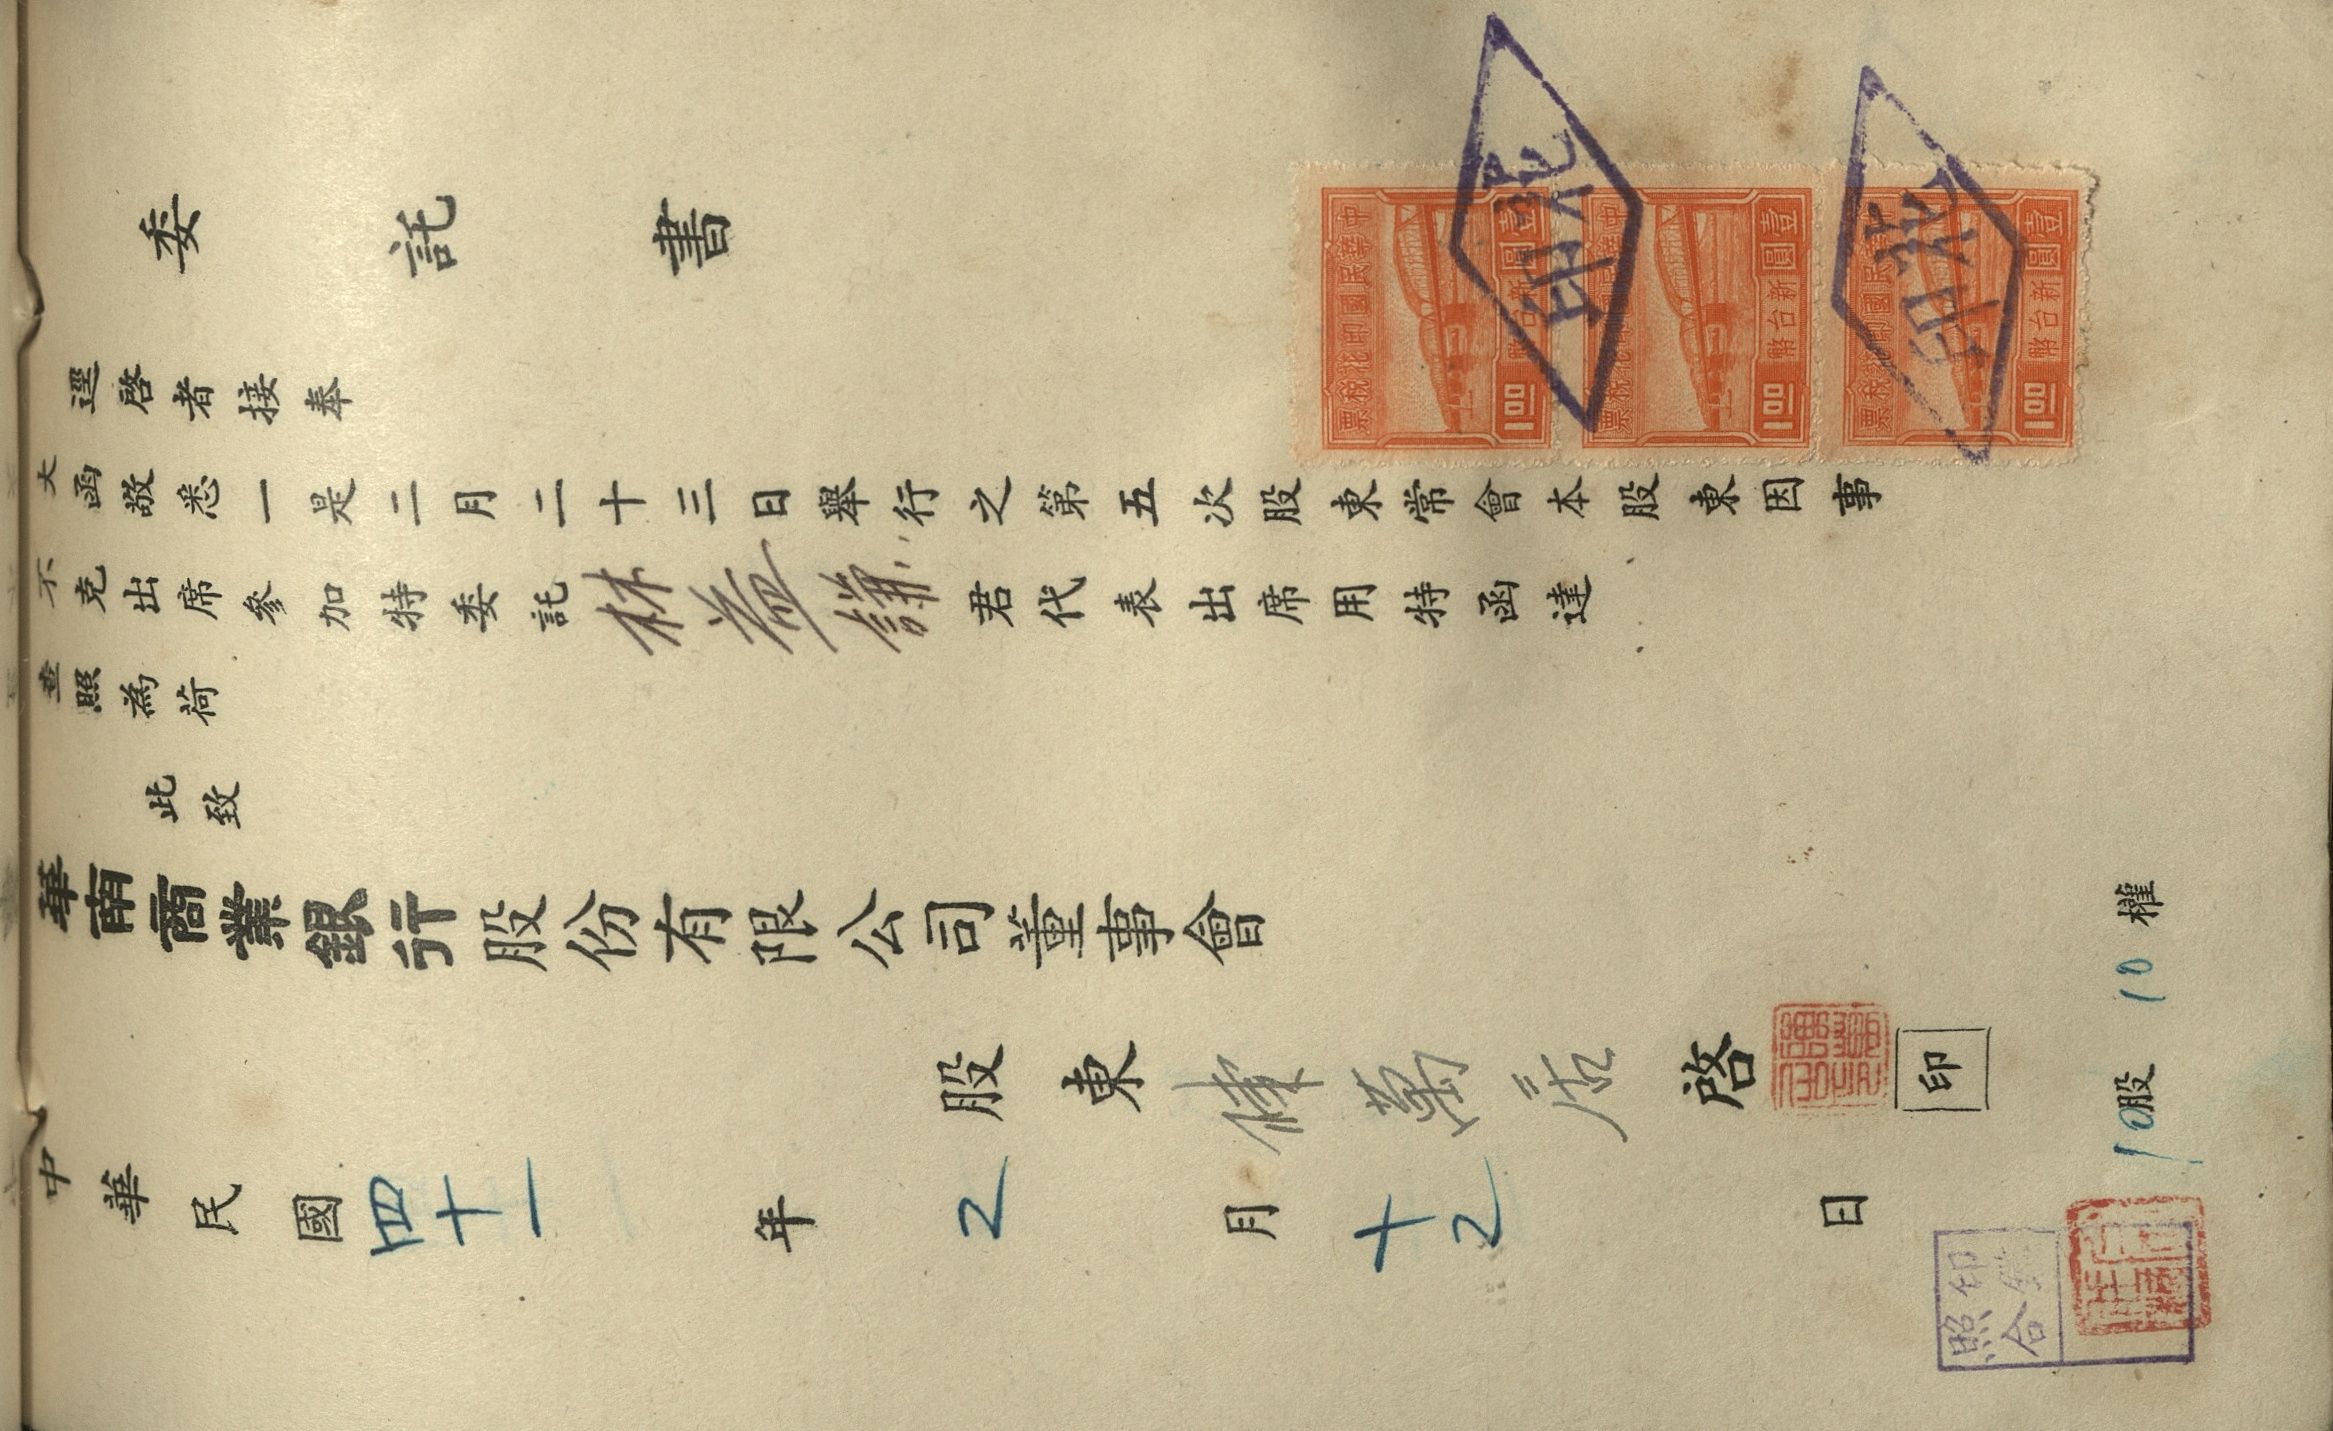 委託書
逕啓者接奉
大函敬悉一是二月二十三日舉行之第五次股東常會本股東因事
不克出席參加特委託林益謙君代表出席用特函達
查照為荷
此致
華南商業銀行股份有限公司董事會
股東 萬居 啓 印
10股 10權
中華民國四十一年2月十2日
中華民國印花稅票
壹圓
新台幣
1.00
中華民國印花稅票
壹圓
新台幣
1.00
中華民國印花稅票
壹圓
新台幣
1.00
印花
印花
印鑑
照合